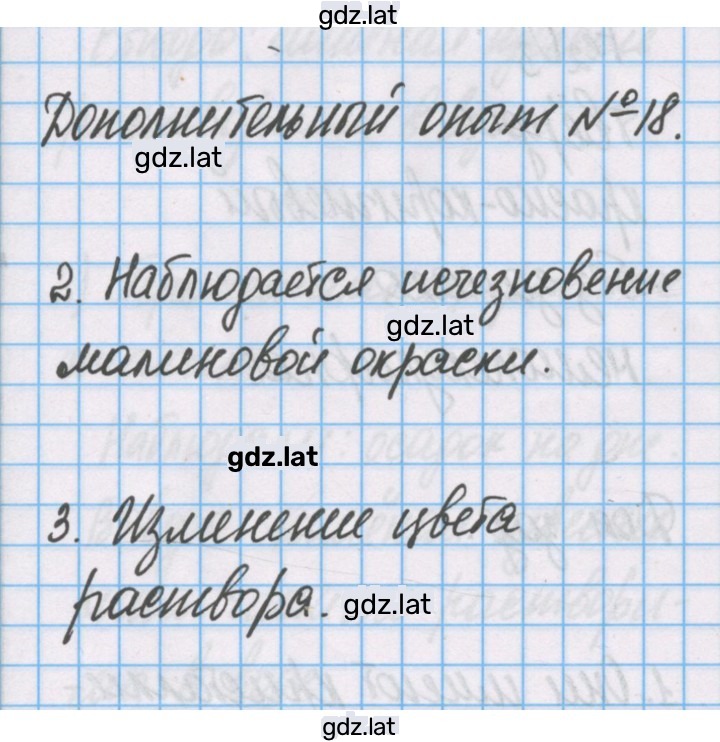 gdz.lat
Дополнительный опыт №18.
gdz.lat
2. Наблюдается исчезновение
gdz.lat
малиновой окраски.
gdz.lat
3. Изменение цвета
раствора. gdz.lat
gdz.lat